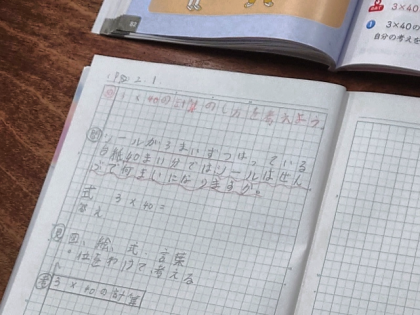 3×40
3×40の
自分の考えを
3×40の計算のしかたを考えよう
シールが3まいずつはっている
台紙40まい分ではシールはぜん
ぶで何まいになりますか。
式 3×40=
答え
図、絵、式、言葉
・位をわけて考える
3×40の計算